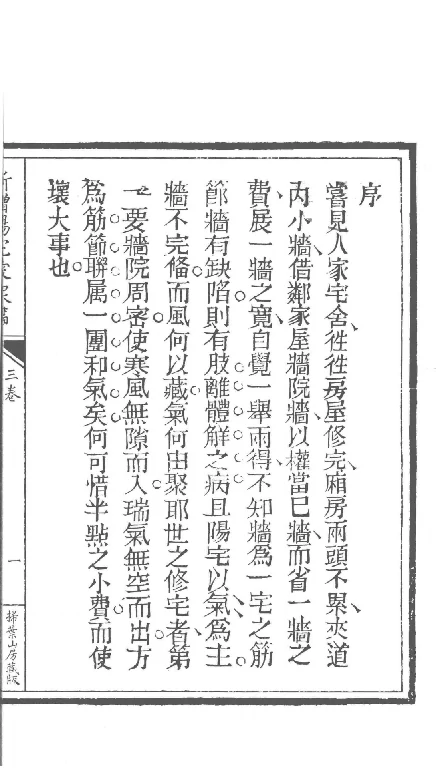 序
嘗見人家宅舍往往房屋修完廂房兩頭不累夾道
內小牆借鄰家屋牆院牆以權當已牆而省一牆之
費展一牆之寬自覺一舉兩得不知牆爲一宅之筋
節牆有缺陷則有肢離體解之病且陽宅以氣爲主
牆不完備而風何以藏氣何由聚耶世之修宅者第
一要牆院周密使寒風無隙而入瑞氣無空而出方
爲筋節聯属一團和氣矣何可惜半點之小費而使
壞大事也
三卷
一
掃葉山房藏版